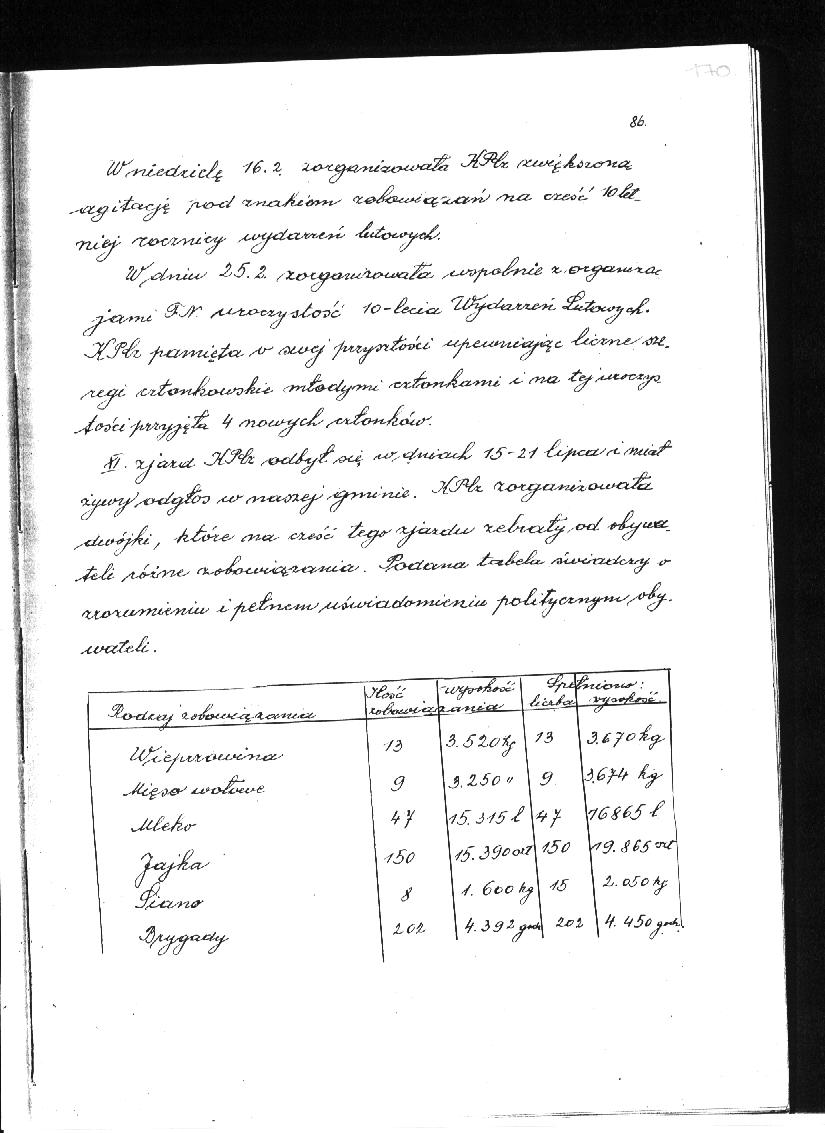 170
86.
W niedzielę 16.2. zorganizowała KPCz zwiększoną
agitację pod znakiem zobowiązań na cześć 10 let-
niej rocznicy wydarzeń lutowych.
W dniu 25.2. zorganizowała wspolnie z organizac
jami F.N. uroczystość 10-lecia Wydarzeń Lutowych.
KPCz pamięta o swej przyszłości upewniając liczne sze-
regi członkowskie młodymi członkami i na tej uroczys
tości przyjęła 4 nowych członków.
XI. zjazd KPCz odbył się w dniach 15-21 lipca i miał
żywy odgłos w naszej gminie. KPCz zorganizowała
dwójki, które na cześć tego zjazdu zebrały od obywa-
teli różne zobowiązania. Podana tabela świadczy o
zrozumieniu i pełnem uświadomieniu politycznym oby-
wateli.
Rodzaj zobowiązania Ilość wysokość zobowiązania Spełniono: liczba wysokość
Wieprzowina 13 3.520 kg 13 3.670 kg
Mięso wołowe 9 3.250 " 9 3.674 kg
Mleko 47 15.315 l 47 16865 l
Jajka 150 15.390 szt 150 19.865 szt
Siano 8 1.600 kg 15 2.050 kg
Brygady 202 4.392 godz 202 4.450 godz.